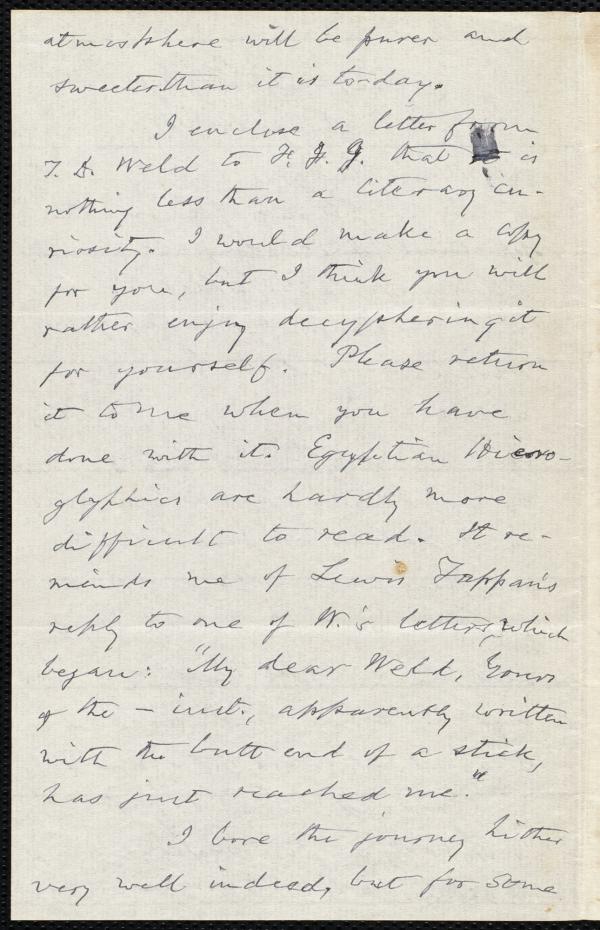 atmosphere will be purer and
sweeter than it is to-day.
I enclose a letter from
T. D. Weld to F. J. G. that is
nothing less than a literary cu-
riosity. I would make a copy
for you, but I think you will
rather enjoy decyphering it
for yourself. Please return
it to me when you have
done with it. Egyptian Hiero-
glyphics are hardly more
difficult to read. It re-
minds me of Lewis Tappan's
reply to one of W.'s letters, which
began: "My dear Weld, Yours
of the — inst., apparently written
with the butt end of a stick,
has just reached me."
I bore the journey hither
very well indeed, but for some